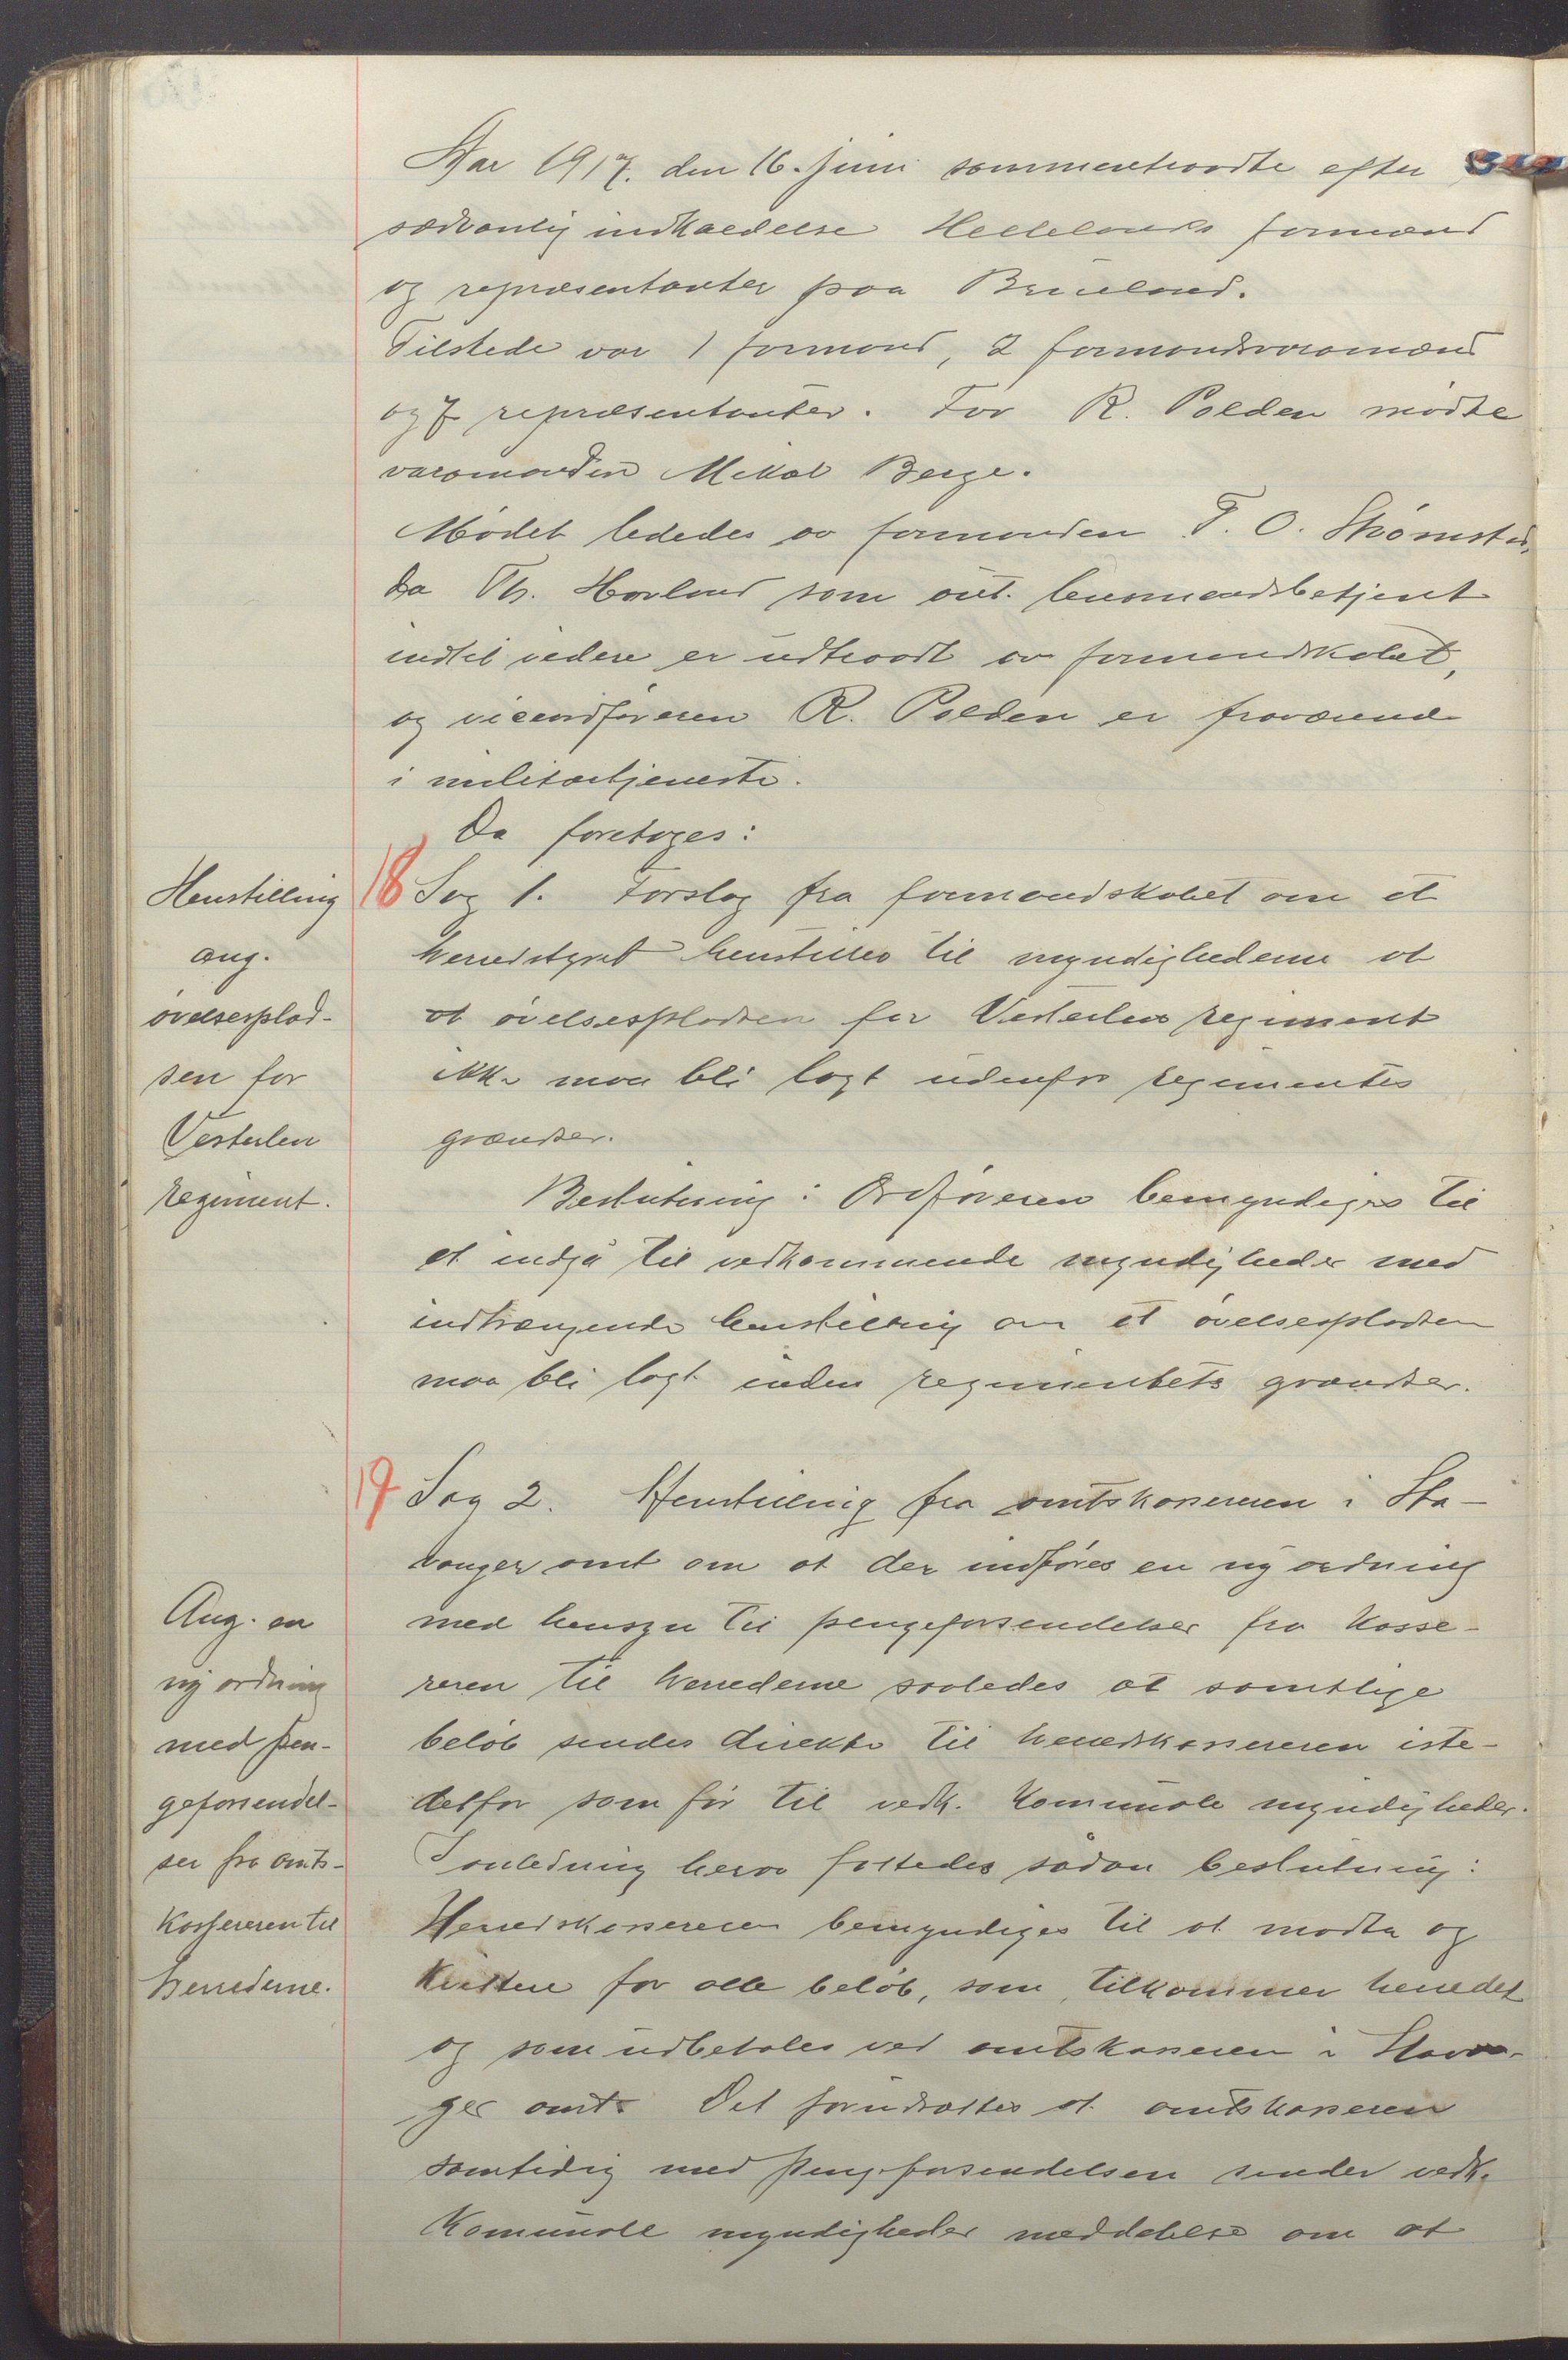 Aar 1917. den 16. juni sammentraadte efter
sædvanlig indkaldelse Hellelands formænd
og repræsentanter paa Brueland.
Tilstede var 1 formand, 2 formandsvaramænd
og 7 repræsentanter. For R. Polden mødte
varamanden Mikal Berge.
Mødet lededes av formanden T. O. Strømsta,
da Th. Hovland som aut. lensmandsbetjent
indtil videre er udtraadt av formandskabet,
og viceordføreren R. Polden er fraværende
i militærtjeneste.
Da foretoges:
Henstilling
ang.
øvelsesplad-
sen for
Vesterlen
regiment.
18 Sag 1. Forslag fra formandskabet om at
herredstyret henstilles til myndighederne at
at øvelsespladsen for Vesterlens regiment
ikke maa bli lagt udenfor regimentes
grændser.
Beslutning: Ordføreren bemyndiges til
at indgå til vedkommende myndigheder med
indtrængende henstilling om at øvelsespladsen
maa bli lagt inden regimentets grændser.
19 Sag 2. Henstilling fra amtskassereren i Sta-
vanger amt om at der indføres en ny ordning
Ang. en
ny ordning
med pen-
geforsendel-
ser fra amts-
kassereren til
herrederne.
med hensyn til pengeforsendelser fra kasse-
reren til herrederne saaledes at samtlige
beløb sendes direkte til herredskassereren iste-
detfor som før til vedk. kommunale myndigheder.
I anledning herav fattedes sådan beslutning:
Herredskassereren bemyndiges til at modta og
kvittere for alle beløb, som tilkommer herredet
og som udbetales ved amtskasseren i Stavan-
ger amt. Det forudsættes at amtskasseren
samtidig med pengeforsendelsen sender vedk.
kommunale myndigheder meddelelse om at